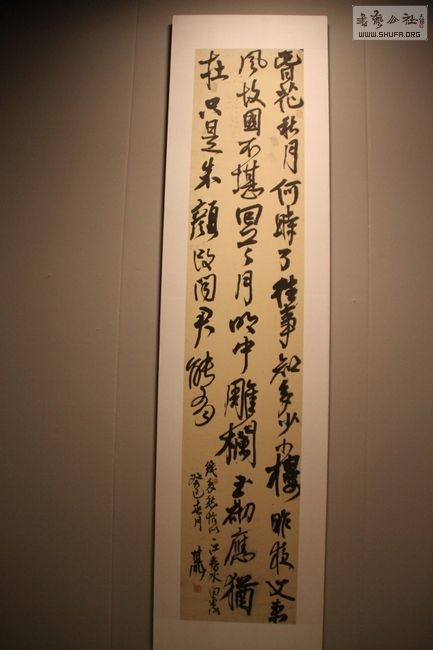 書藝公社
WWW.SHUFA.ORG
春花秋月何時了往事知多少小樓昨夜又東
風故國不堪回首月明中雕欄玉砌應猶
在只是朱顏改問君能有
幾多愁恰似一江春水向東流
癸巳春月